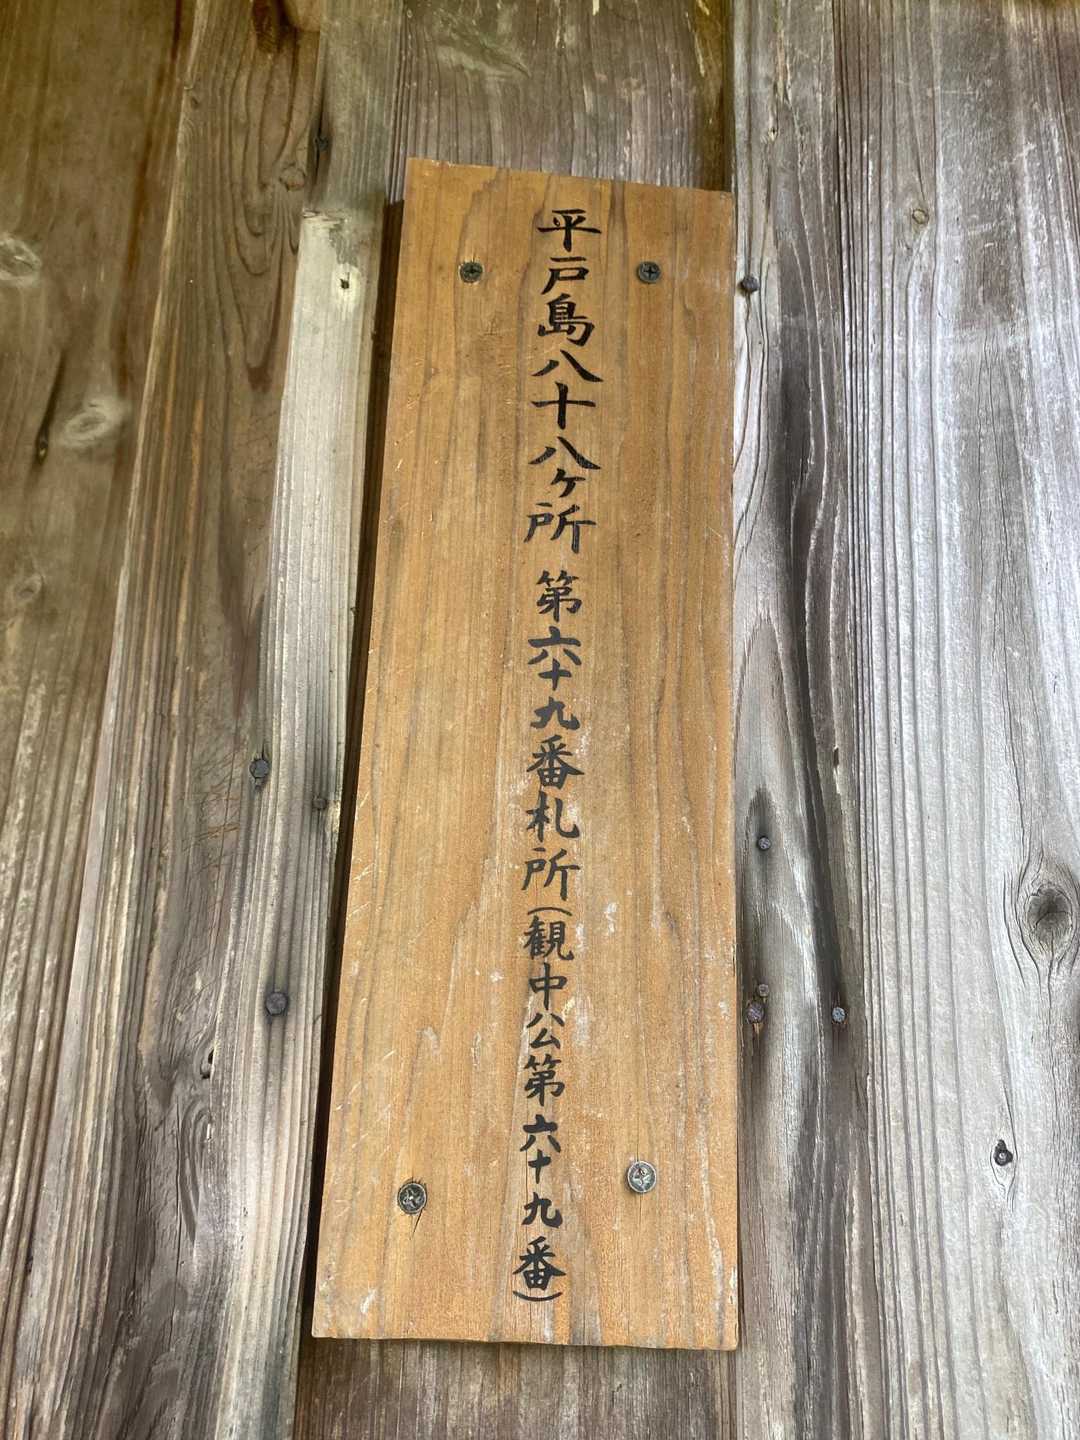 平戸島八十八ヶ所 第六十九番札所(観中公第六十九番)